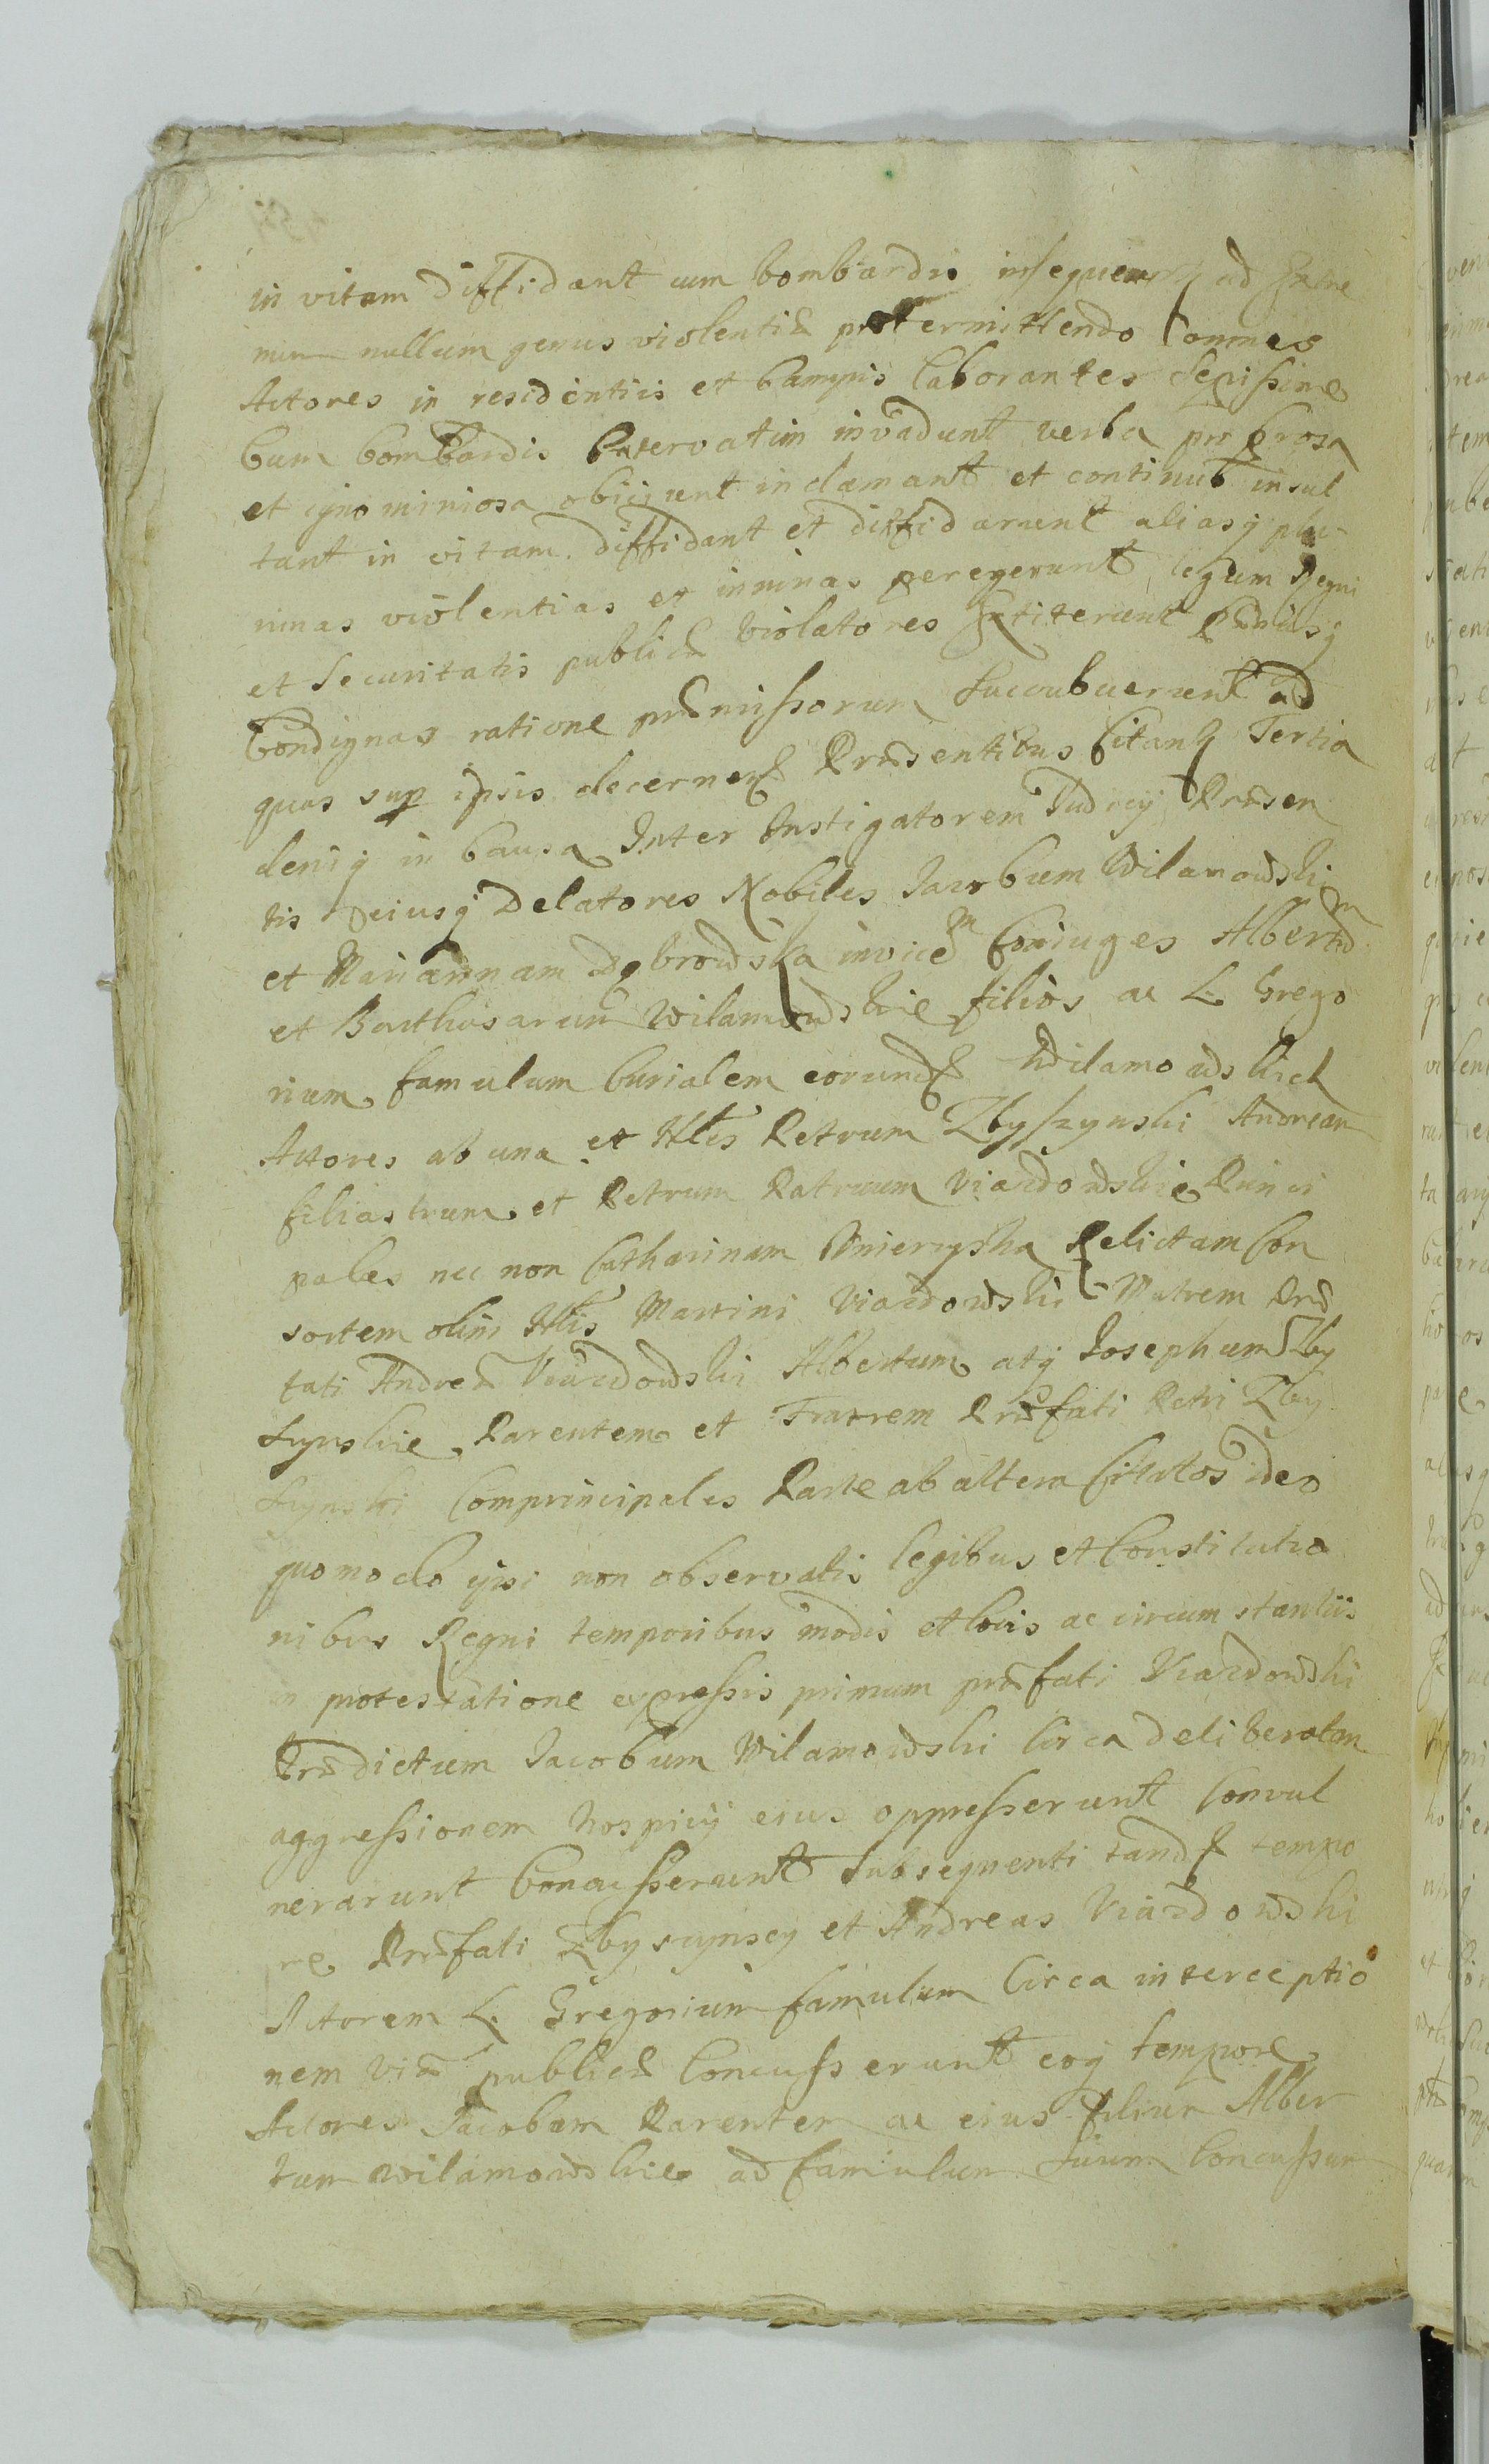 in vitam diffidant cum bombardis insequunt ad Extre
mum nullum genus violentiæ prætermittendo omnes
Actores in residentiis et Campis laborantes sepissime
Cum bombardis Catervatim invadunt verba probrosa
et ignominiosa obiiciunt inclamant et continuo insul
tant in vitam diffidant et diffidarunt aliasq plu-
rimas violentias et iniurias peregerunt, legum Regni
et Securitatis publicæ violatores Extiterunt Pœnasq
Condignas ratione præmissorum Succubuerunt ad
quas sup ipsis decernen Præsentibus Citant Tertia
deniq in Causa Inter Instigatorem Judicij Præsen
tis eiusq Delatores Nobiles Jacobum Wilamowski
et Mariannam Dąbrowska invicem Coniuges Albertum
et Balthasarum Wilamowskie filios ac L. Grego
rium famulum Curialem eorund Wilamowskich
Actores ab una et Nles Petrum Zbyszynski Andream
filiastrum et Petrum Patruum Viazdowskie Princi
pales nec non Catharinam Relictam Con
sortem olim Nlis Martini Viazdowski Matrem Præ
fati Andreæ Viazdowski Albertum atq Josephum Zby
szynskie Parentem et Fratrem Præfati Petri Zby
szynski Comprincipales Parte ab altera Citatos ideo
quomodo ipsi non observatis legibus et Constitutio
nibus Regni temporibus modis et locis ac circumstantiis
in protestatione expressis primum præfati Viazdowski
Prædictum Jacobum Wilamowski Circa deliberatam
aggressionem hospicij eius oppresserunt Convul
nerarunt Concusserunt Subsequenti tand tempo
re Præfati Zbyszynscy et Andreas Viazdowski
Actorem L. Gregorium famulum Circa interceptio
nem viæ publicæ Concusserunt eoq tempore
Actores Jacobum Parentem ac eius filium Alber
tum Wilamowskie ad famulum suum Concussum